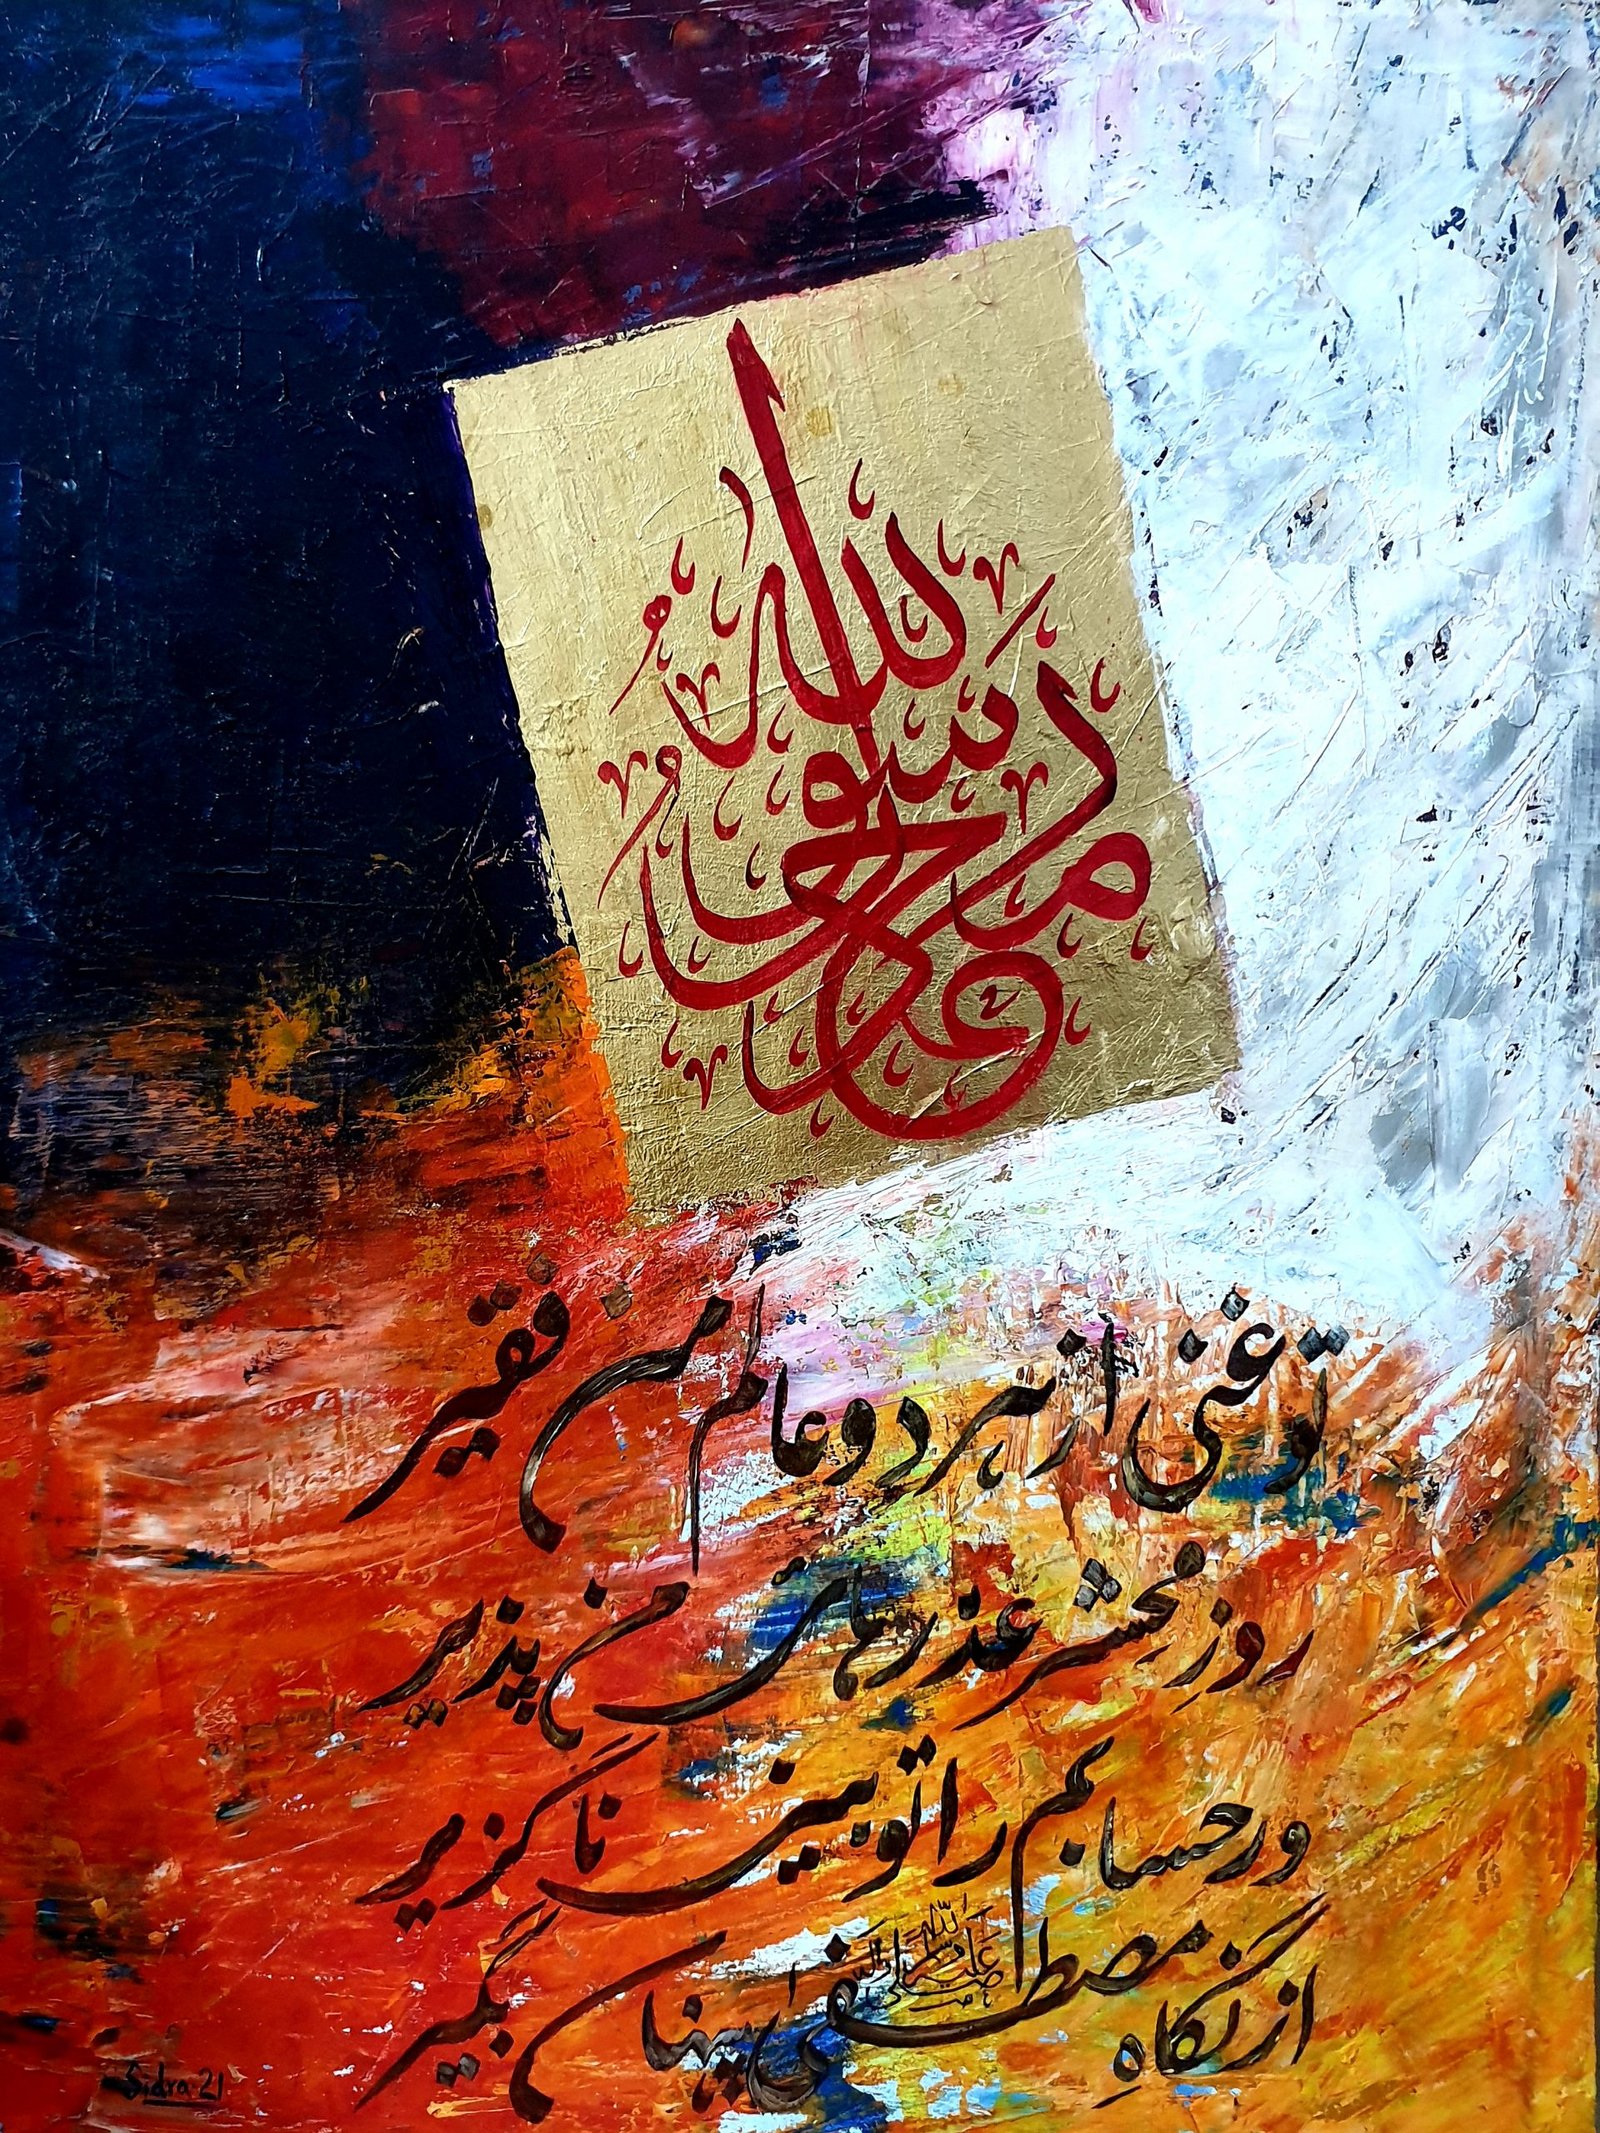 محمد رسول الله
تو غنی از ہر دو عالم من فقیر
روزِ محشر عذر ہای من پذیر
ور حسابم را تو بینی ناگزیر
از نگاہِ مصطفیٰ ﷺ پنہاں بگیر
Sidra 21